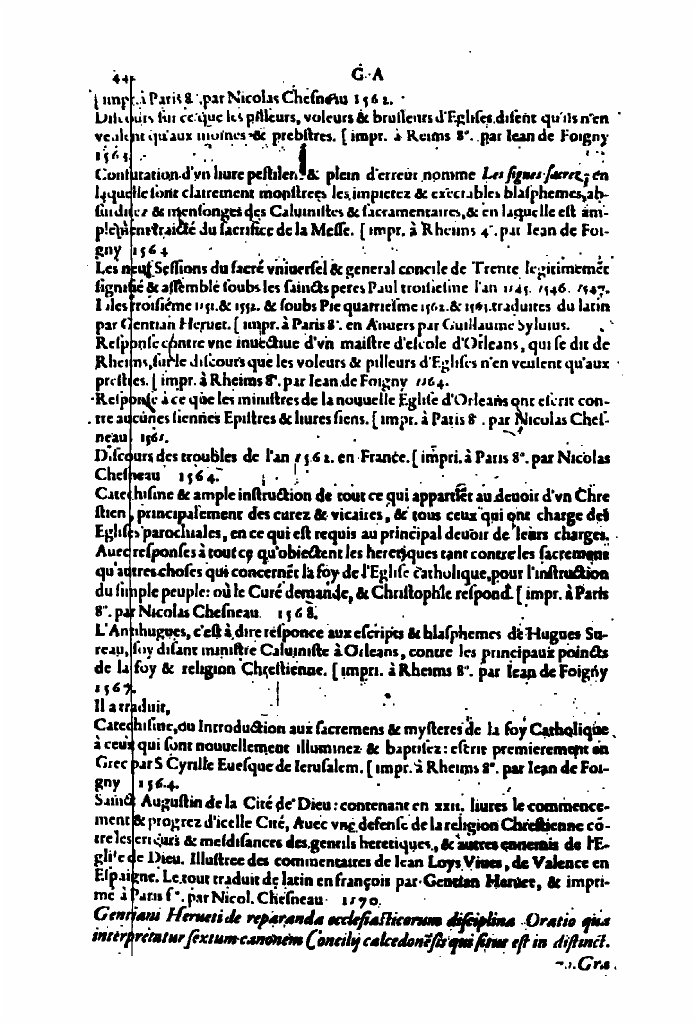 44 G A
[ impr. à Paris 8°. par Nicolas Chesneau 1562.
Discours sur ce que les pilleurs, voleurs & brusleurs d'Eglises disent qu'ils n'en
veulent qu'aux moines & prebstres. [ impr. à Reims 8°. par Iean de Foigny
Confutation d'vn liure pestilent & plein d'erreur nomme Les signes sacrez, en
laquelle sont clairement monstrees les impietez & execrables blasphemes, ab-
surditez & mensonges des Caluinistes & sacramentaires, & en laquelle est am-
plement traicté du sacrifice de la Messe. [ impr. à Rheims 4°. par Iean de Foi-
gny 1564
Les neuf Sessions du sacré vniuersel & general concile de Trente legitimemēt
signifié & assemblé soubs les saincts peres Paul troisiesme l'an 1545. 1546. 1547.
Iules troisiéme 1551. & 1552. & soubs Pie quatriesme 1562. & 1563. traduites du latin
par Gentian Heruet. [ impr. à Paris 8°. en Anuers par Guillaume Syluius.
Response contre vne inuectiue d'vn maistre d'escole d'Orleans, qui se dit de
Rheims, sur le discours que les voleurs & pilleurs d'Eglises n'en veulent qu'aux
prestres. [ impr. à Rheims 8°. par Iean de Foigny 1564.
Response à ce que les ministres de la nouuelle Eglise d'Orleans ont escrit con-
tre aucunes siennes Epistres & liures siens. [ impr. à Paris 8°. par Nicolas Ches-
neau 1562.
Discours des troubles de l'an 1562. en France. [ impri. à Paris 8°. par Nicolas
Chesneau 1564.
Catechisme & ample instruction de tout ce qui appartiēt au deuoir d'vn Chre
stien, principalement des curez & vicaires, & tous ceux qui ont charge des
Eglises parochiales, en ce qui est requis au principal deuoir de leurs charges.
Auec responses à tout ce qu'obiectent les heretiques tant contre les sacremens
qu'autres choses qui concernēt la foy de l'Eglise catholique, pour l'instruction
du simple peuple: où le Curé demande, & Christophle respond. [ impr. à Paris
8°. par Nicolas Chesneau. 1568.
L'Antihugues, c'est à dire response aux escripts & blasphemes de Hugues Su-
reau, soy disant ministre Caluiniste à Orleans, contre les principaux poincts
de la foy & religion Chrestienne. [ impri. à Rheims 8°. par Iean de Foigny
1567.
Il a traduit,
Catechisme, ou Introduction aux sacremens & mysteres de la foy Catholique,
à ceux qui sont nouuellement illuminez & baptisez: escrit premierement en
Grec par S Cyrille Euesque de Ierusalem. [ impr. à Rheims 8°. par Iean de Foi-
gny 1564.
Sainct Augustin de la Cité de Dieu: contenant en XXII. liures le commence-
ment & progrez d'icelle Cité, Auec vne defense de la religion Chrestienne cō-
tre les erreurs & mesdisances des gentils heretiques, & autres ennemis de l'E-
glise de Dieu. Illustree des commentaires de Iean Loys Viues, de Valence en
Espaigne. Le tout traduit de latin en françois par Gentian Heruet, & impri-
mé à Paris f°. par Nicol. Chesneau 1570.
Gentiani Herueti de reparanda ecclesiasticorum disciplina Oratio qua
interpretatur sextum canonem Concilij calcedonēsis qui situs est in distinct.
Gra.